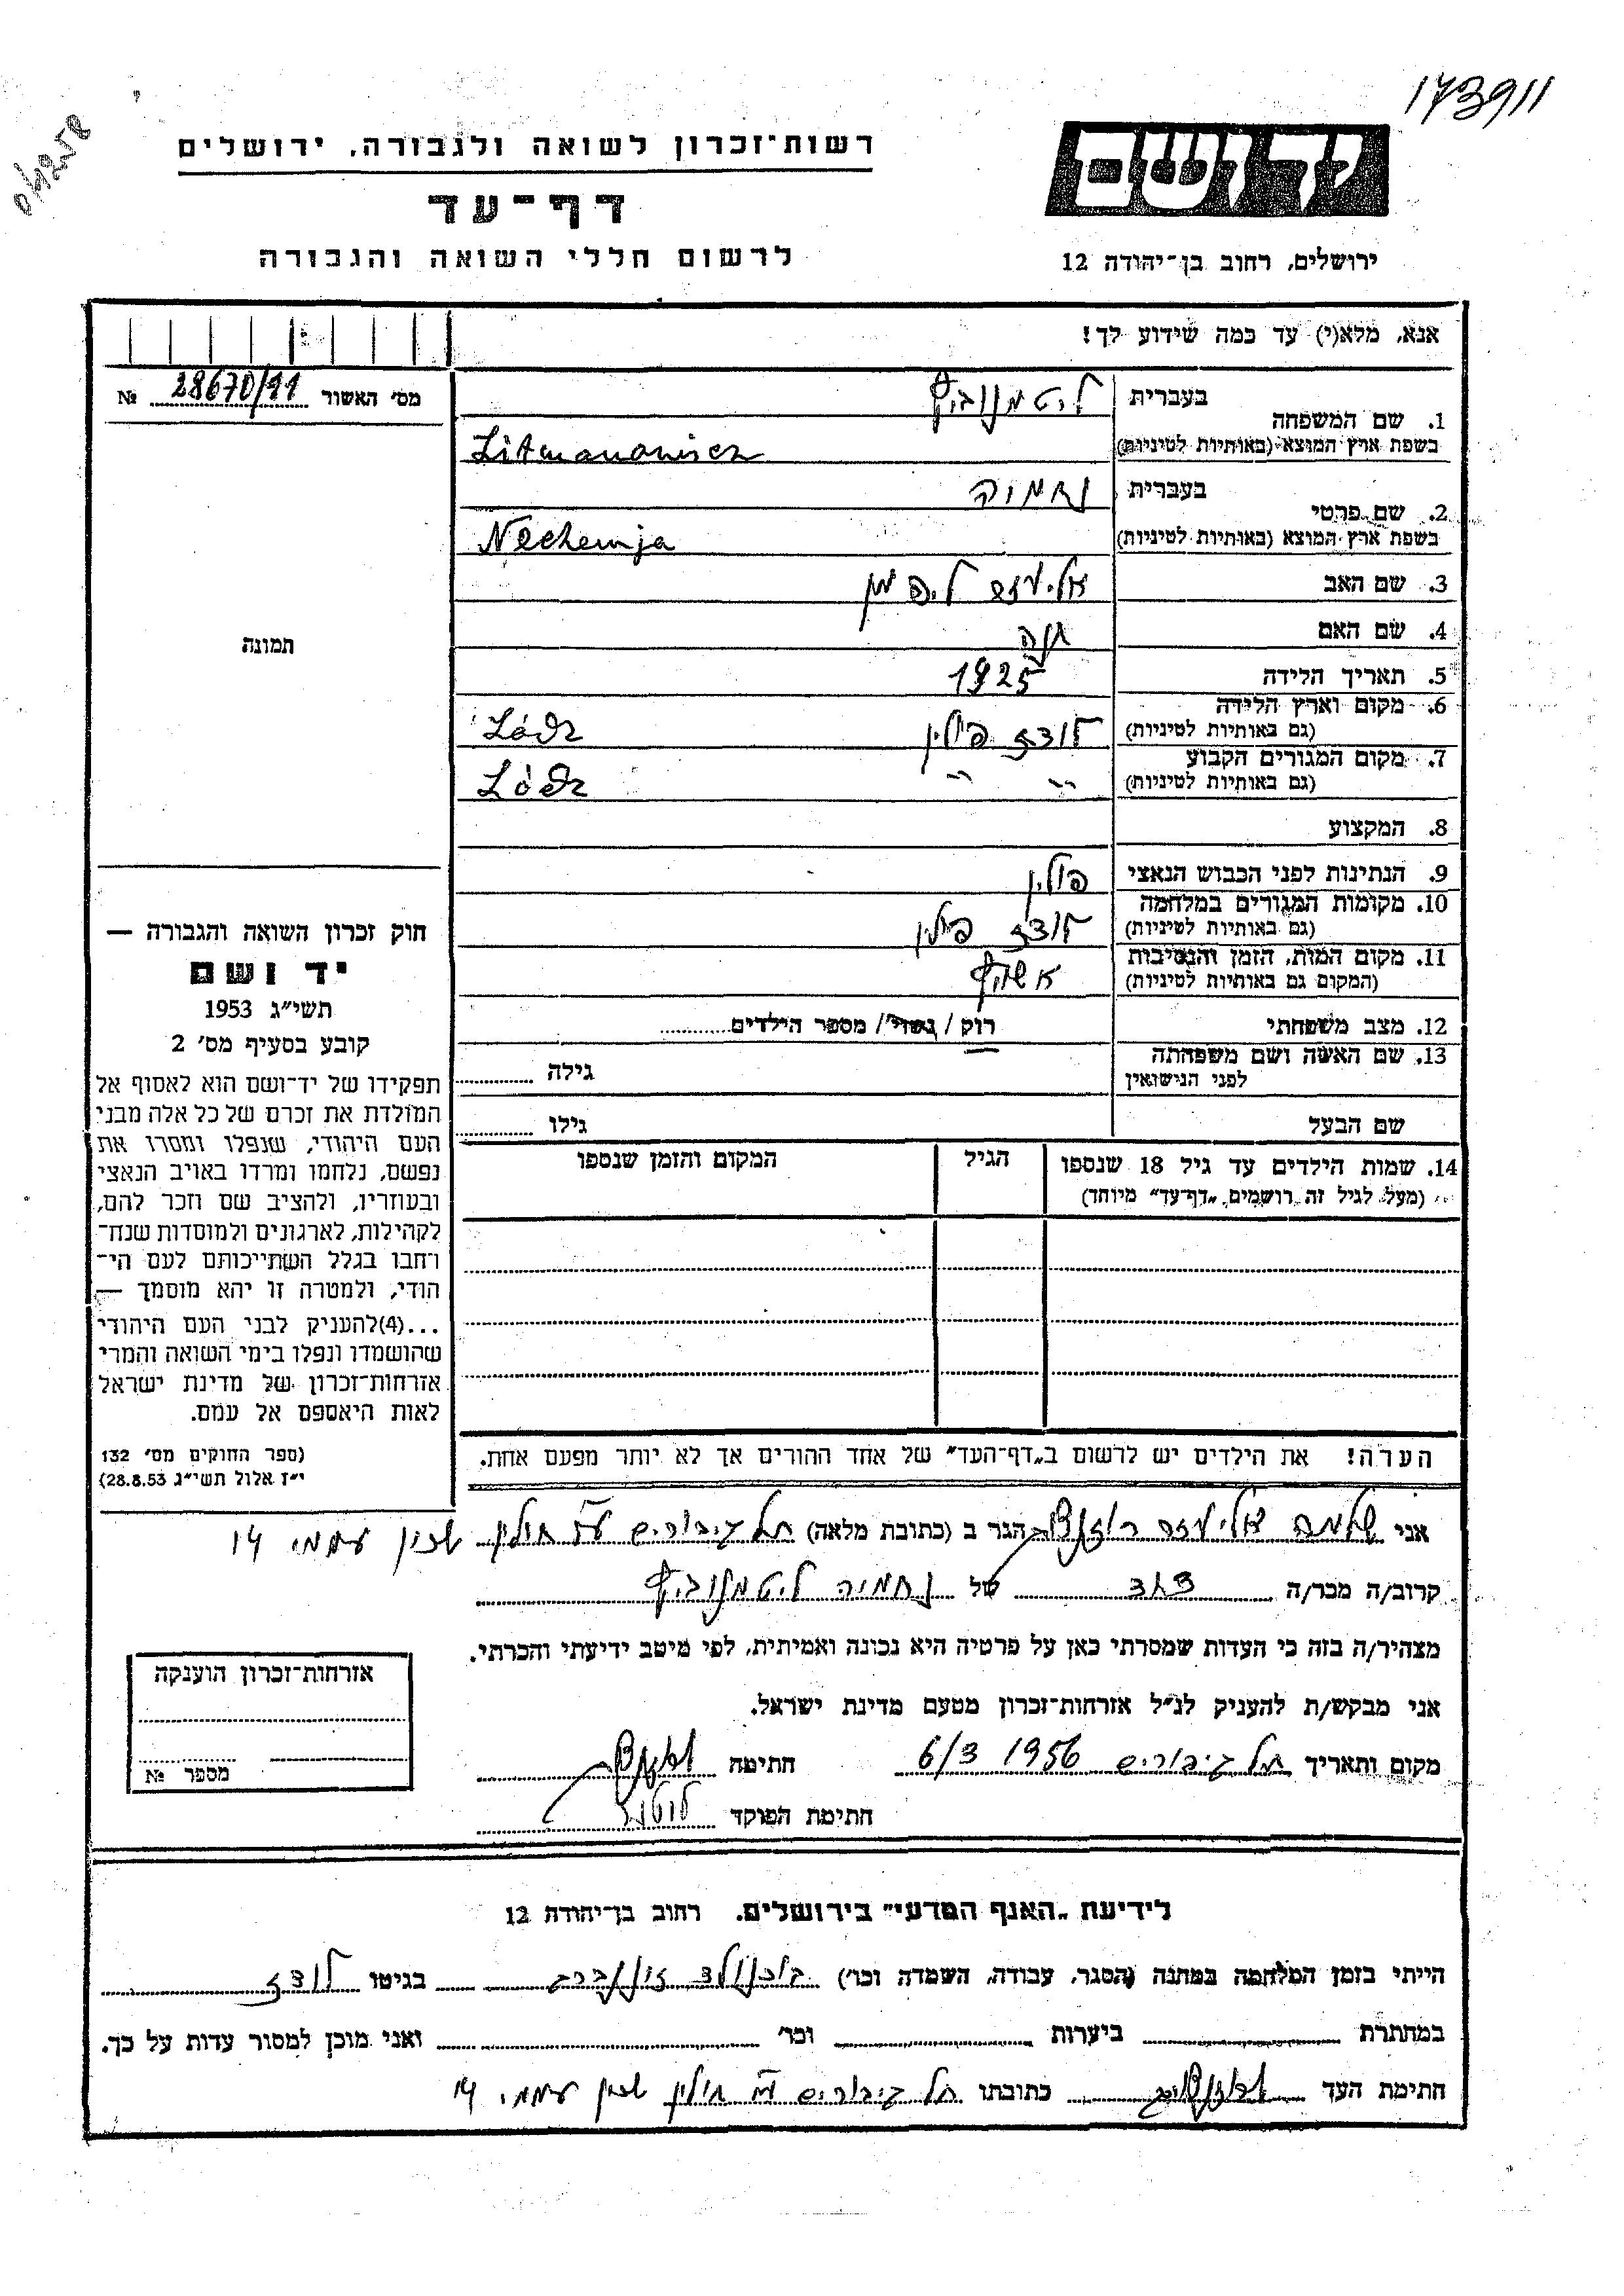 173911
רשות־זכרון לשואה ולגבורה, ירושלים
יד ושם
דף־עד
לרשום חללי השואה והגבורה
ירושלים, רחוב בן־יהודה 12
אנא, מלא(י) עד כמה שידוע לך!
מס' האשור 28670/11 №
1. שם המשפחה בעברית ליטמנוביץ
בשפת ארץ המוצא (באותיות לטיניות) Litmanowicz
2. שם פרטי בעברית נחמיה
בשפת ארץ המוצא (באותיות לטיניות) Nechemja
3. שם האב אליעזר ליפמן
4. שם האם חנה
5. תאריך הלידה 1925
6. מקום וארץ הלידה (גם באותיות לטיניות) לודז פולין Łódz
7. מקום המגורים הקבוע (גם באותיות לטיניות) –"– –"– Łódz
8. המקצוע
9. הנתינות לפני הכבוש הנאצי פולין
10. מקומות המגורים במלחמה (גם באותיות לטיניות) לודז פולין
11. מקום המות, הזמן והנסיבות (המקום גם באותיות לטיניות) אושויץ
12. מצב משפחתי רוק / נשוי / מספר הילדים
13. שם האשה ושם משפחתה לפני הנישואין גילה
שם הבעל גילו
14. שמות הילדים עד גיל 18 שנספו הגיל המקום והזמן שנספו
(מעל לגיל זה רושמים „דף־עד" מיוחד)
תמונה
חוק זכרון השואה והגבורה —
יד ושם
תשי"ג 1953
קובע בסעיף מס' 2
תפקידו של יד־ושם הוא לאסוף אל
המולדת את זכרם של כל אלה מבני
העם היהודי, שנפלו ומסרו את
נפשם, נלחמו ומרדו באויב הנאצי
ובעוזריו, ולהציב שם וזכר להם,
לקהילות, לארגונים ולמוסדות שנח־
רחבו בגלל השתייכותם לעם הי־
הודי, ולמטרה זו יהא מוסמך —
...(4)להעניק לבני העם היהודי
שהושמדו ונפלו בימי השואה והמרי
אזרחות־זכרון של מדינת ישראל
לאות היאספם אל עמם.
(ספר החוקים מס' 132
י"ז אלול תשי"ג 28.8.53)
הערה! את הילדים יש לרשום ב„דף־העד" של אחד ההורים אך לא יותר מפעם אחת.
אני שלמה אליעזר הגר ב (כתובת מלאה) תל גיבורים ע"י חולין שכון עממי 14
קרוב/ה מכר/ה של נחמיה ליטמנוביץ
מצהיר/ה בזה כי העדות שמסרתי כאן על פרטיה היא נכונה ואמיתית, לפי מיטב ידיעתי והכרתי.
אני מבקש/ת להעניק לנ"ל אזרחות־זכרון מטעם מדינת ישראל.
מקום ותאריך תל גיבורים 6/3 1956 חתימה
חתימת הפוקד
אזרחות־זכרון הוענקה
מספר №
לידיעת „האגף המדעי" בירושלים. רחוב בן־יהודה 12
הייתי בזמן המלחמה במחנה (הסגר, עבודה, השמדה וכו') בוכנולד בגיטו לודז
במחתרת ביערות וכו' ואני מוכן למסור עדות על כך.
חתימת העד כתובתו תל גיבורים ע"י חולין שכון עממי 14